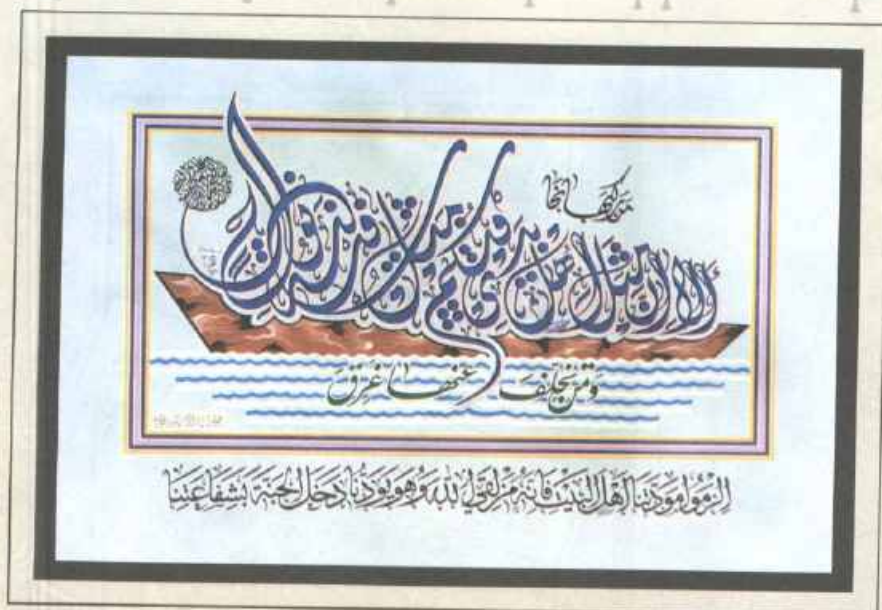 ألا إن مثل أهل بيتي فيكم مثل سفينة نوح
من ركبها نجا
ومن تخلف عنها غرق
الزموا مودتنا أهل البيت فإنه من لقي الله وهو يودنا دخل الجنة بشفاعتنا